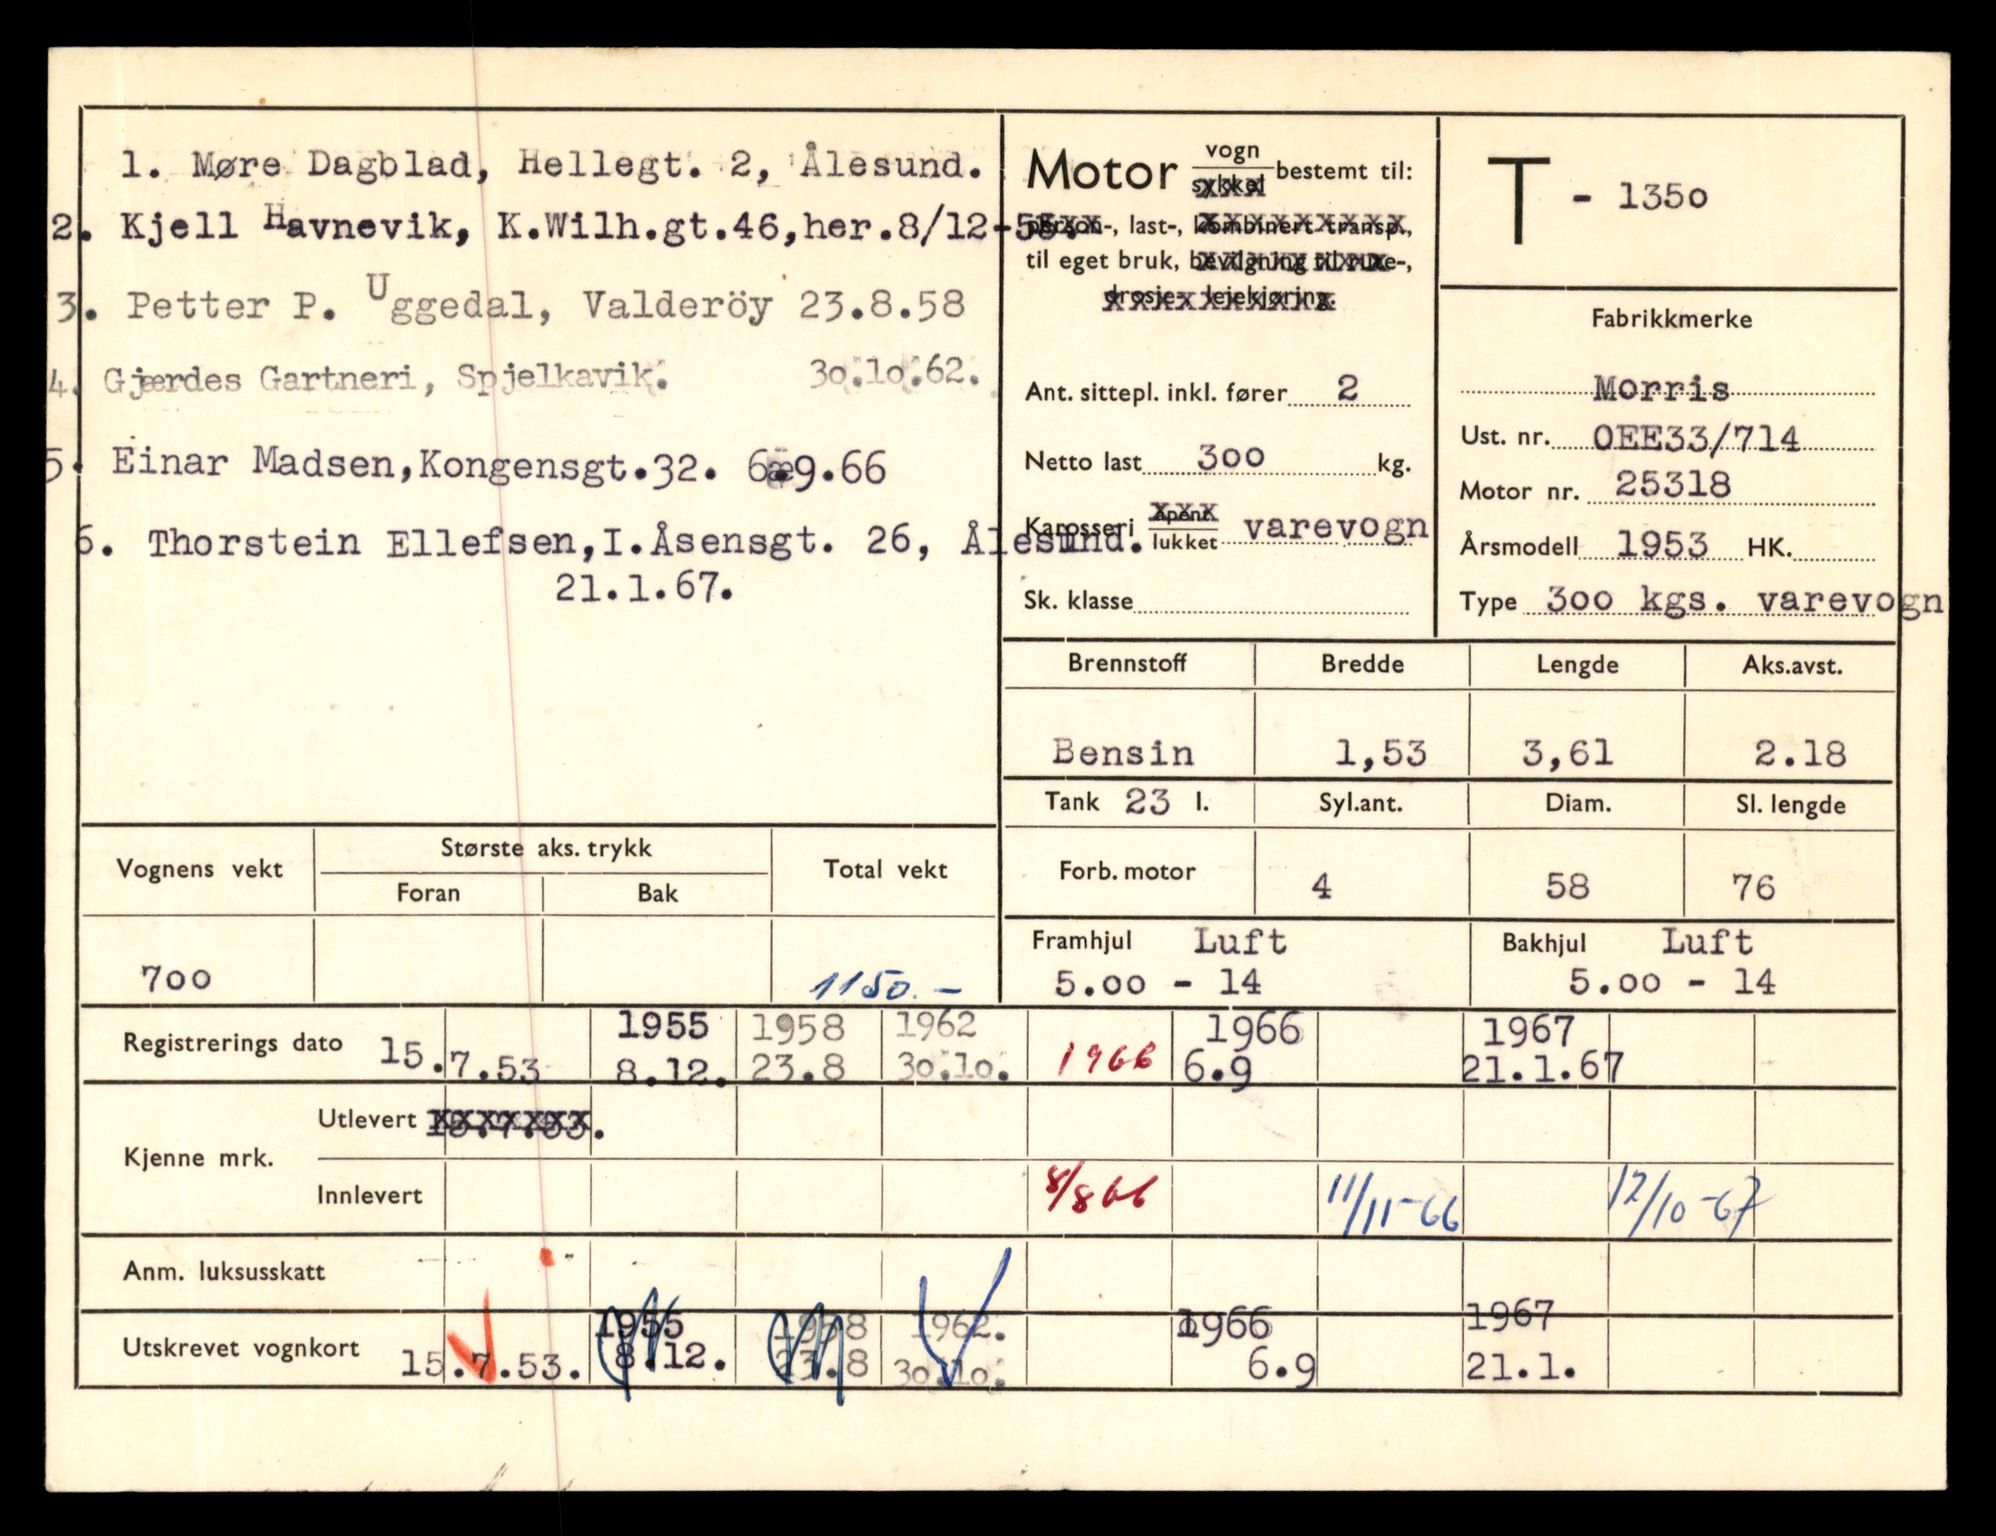 1. Møre Dagblad, Hellegt. 2, Ålesund.
2. Kjell Havnevik, K.Wilh.gt.46,her.8/12-55.
3. Petter P. Uggedal, Valderöy 23.8.58
4. Gjærdes Gartneri, Spjelkavik. 30.10.62.
5. Einar Madsen,Kongensgt.32. 6.9.66
6. Thorstein Ellefsen,I.Åsensgt. 26, Ålesund.
21.1.67.
Motor vogn sykkel bestemt til:
person-, last-, kombinert transp.,
til eget bruk, bevilgning til rute-,
drosje- leiekjøring.
Ant. sittepl. inkl. fører 2
Netto last 300 kg.
Karosseri åpent lukket varevogn
Sk. klasse
T - 1350
Fabrikkmerke
Morris
Ust. nr. OEE33/714
Motor nr. 25318
Årsmodell 1953 HK.
Type 300 kgs. varevogn
Brennstoff Bredde Lengde Aks.avst.
Bensin 1,53 3,61 2.18
Tank 23 l. Syl.ant. Diam. Sl. lengde
Forb. motor 4 58 76
Framhjul Luft Bakhjul Luft
5.00 - 14 5.00 - 14
Vognens vekt Største aks. trykk Total vekt
Foran Bak
700 1150.-
Registrerings dato 15.7.53 1955 8.12. 1958 23.8 1962 30.10. 1966 1966 6.9 1967 21.1.67
Kjenne mrk. Utlevert 15.7.53.
Innlevert 8/8 66 11/11-66 12/10-67
Anm. luksusskatt
Utskrevet vognkort 15.7.53. 1955 8.12. 1958 23.8 1962. 30.10. 1966 6.9 1967 21.1.